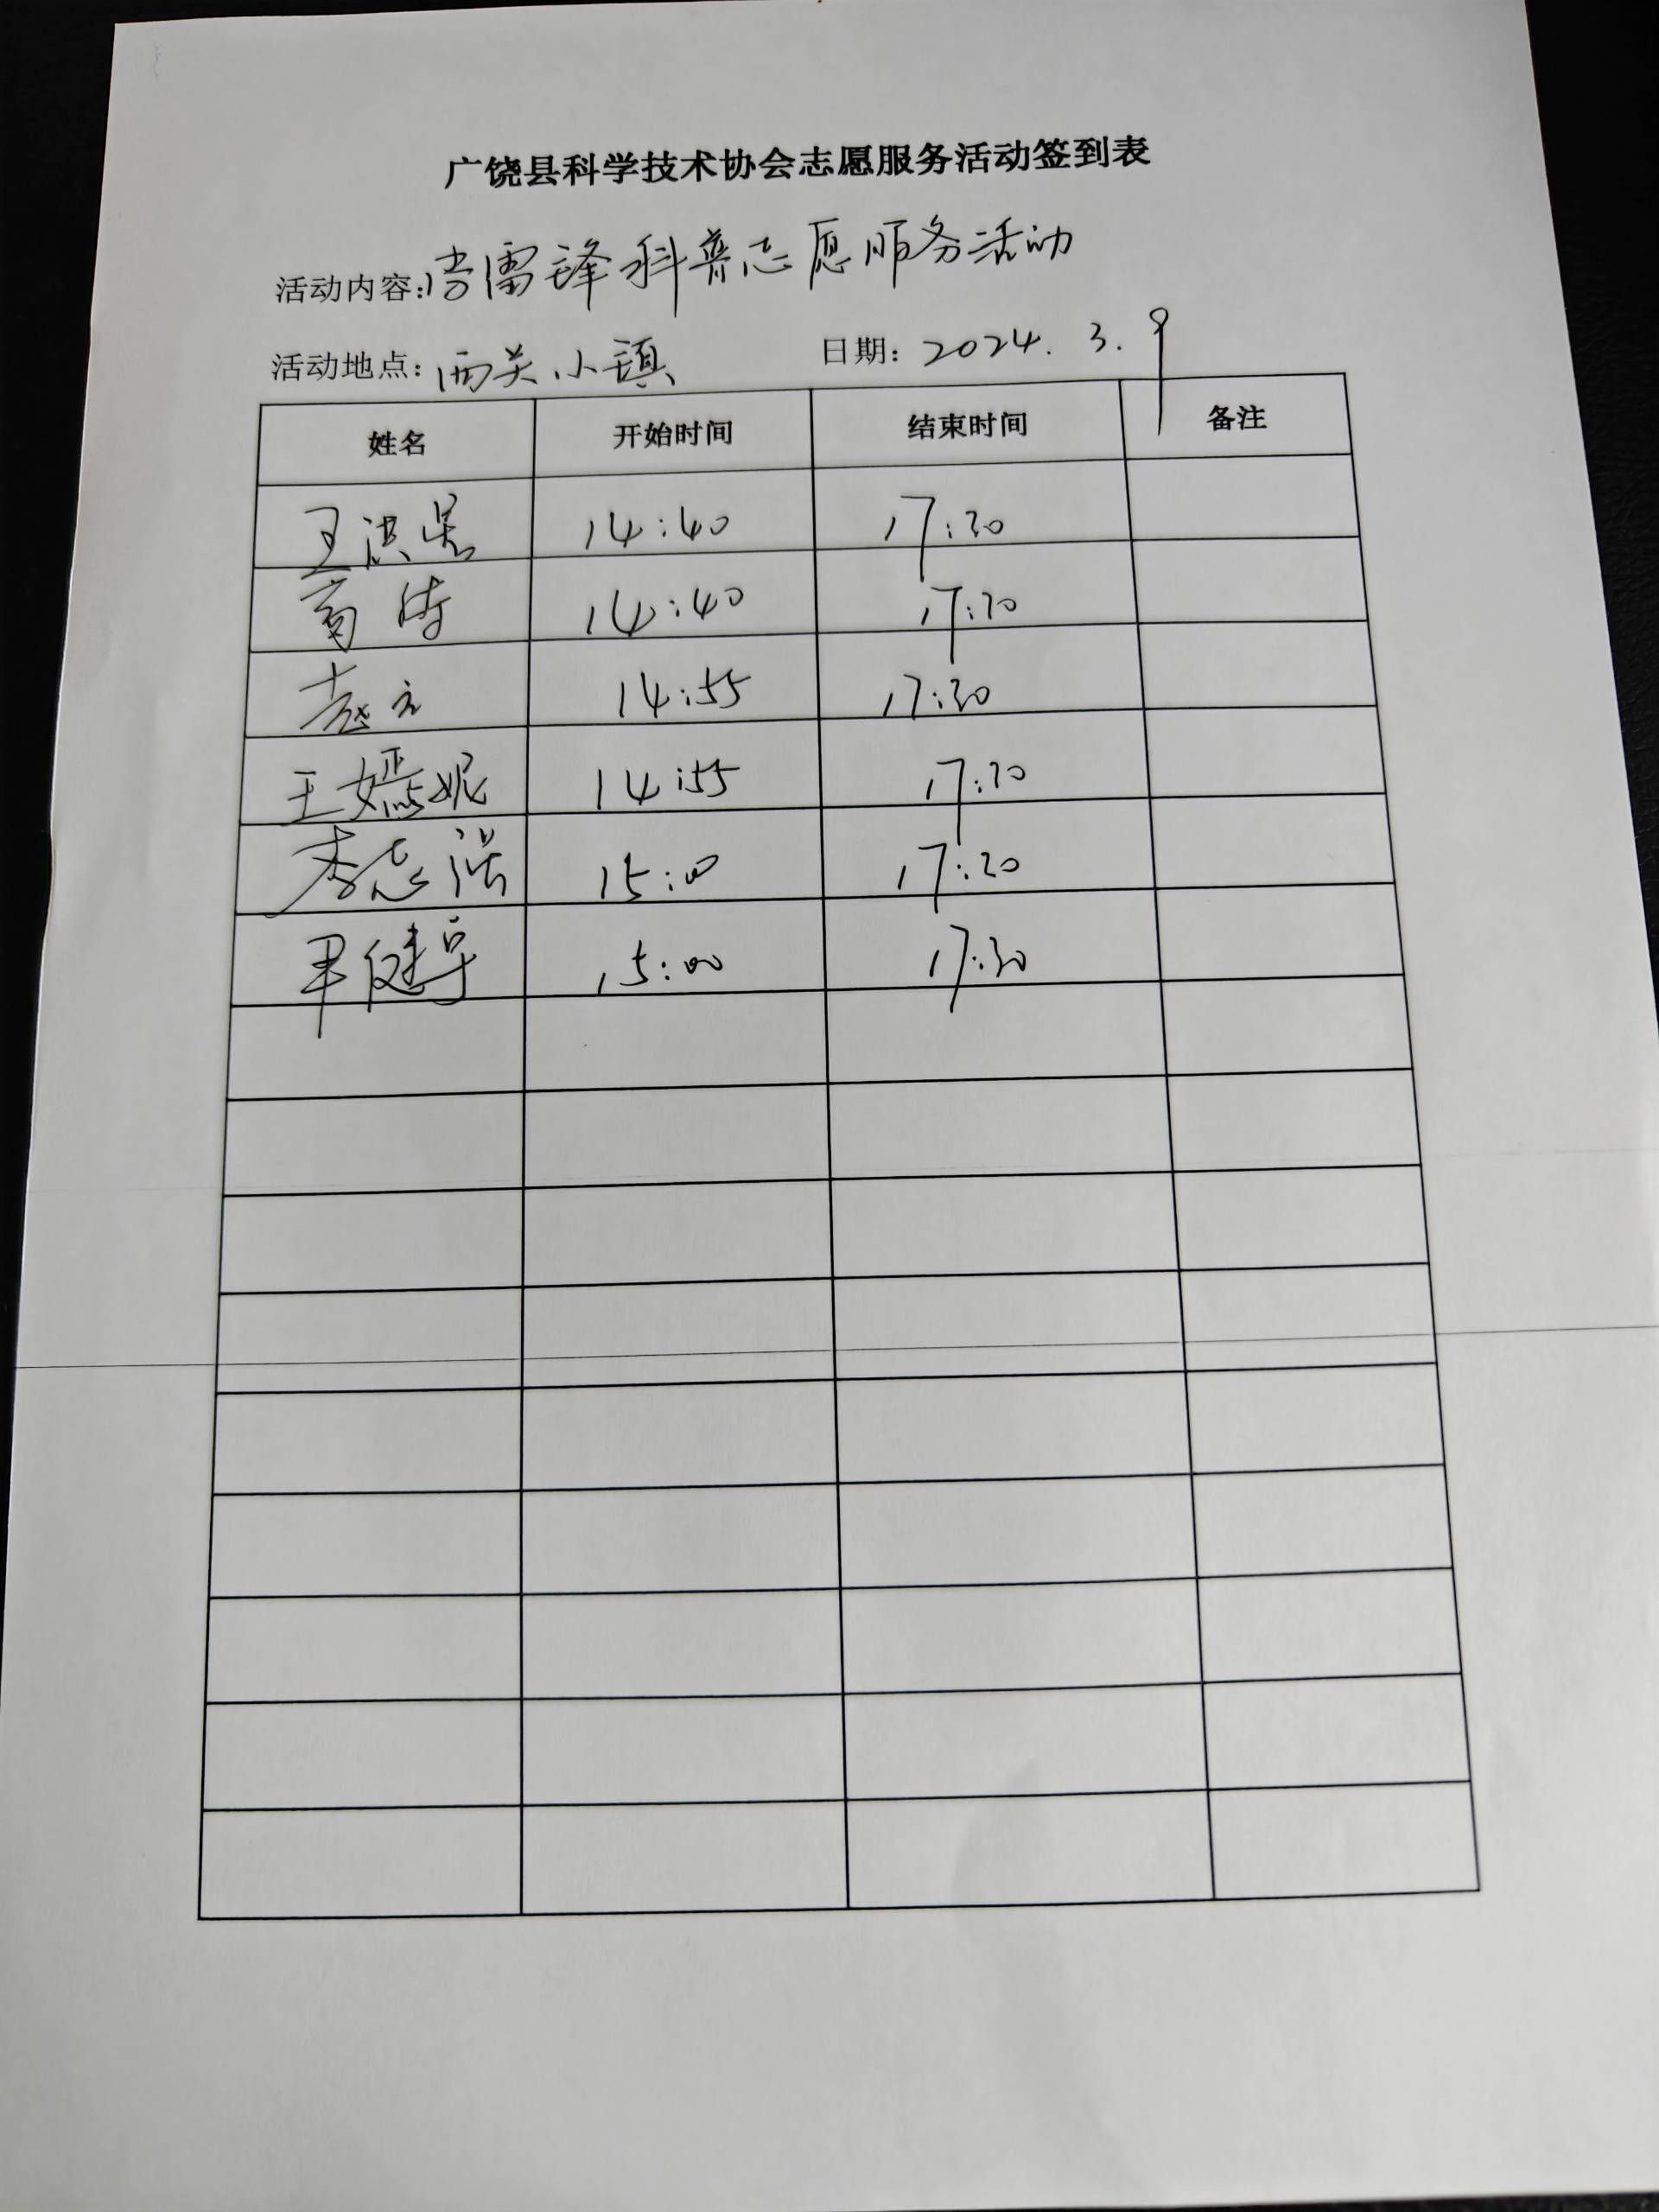 广饶县科学技术协会志愿服务活动签到表
活动内容:学雷锋科普志愿服务活动
活动地点:西关小镇 日期:2024.3.9
姓名 开始时间 结束时间 备注
王洪 14:40 17:30
14:40 17:30
14:55 17:30
王嫣妮 14:55 17:30
李志浩 15:00 17:20
健 15:00 17:30